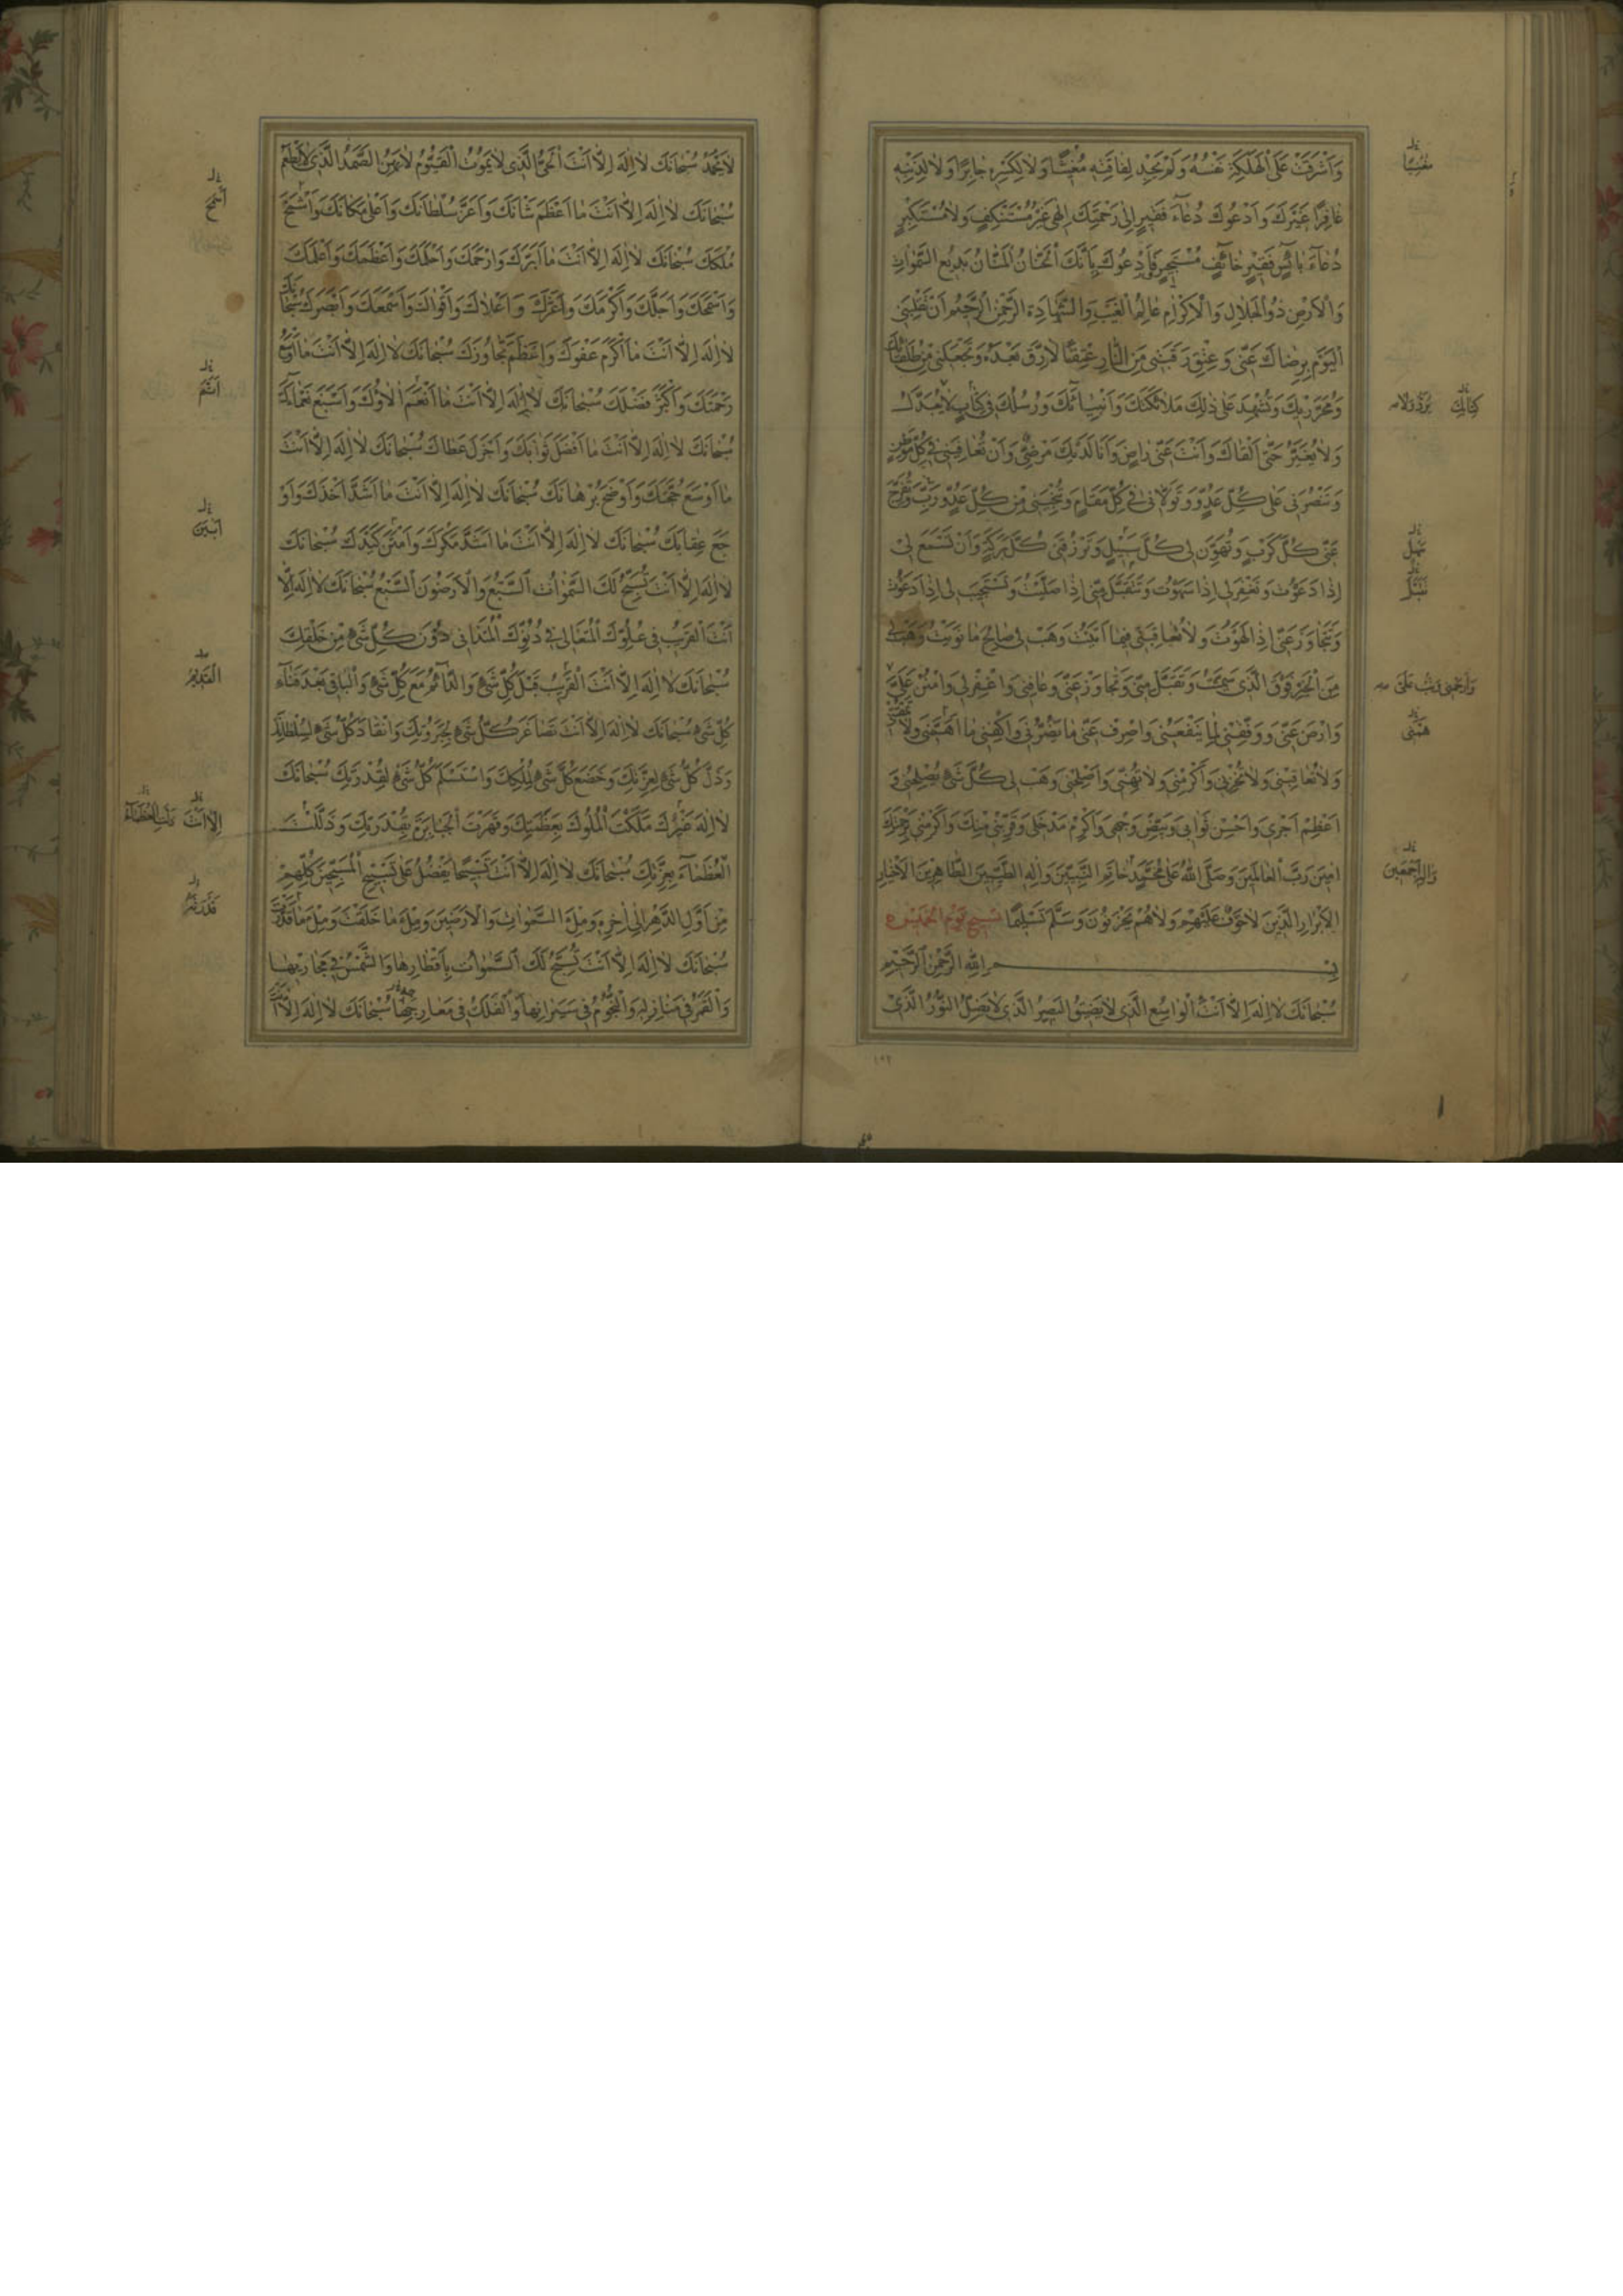 وَاَشْرَفَتْ عَلَى الْهَلَكَةِ نَفْسُهُ وَلَمْ يَجِدْ لِفاقَتِهِ مُغيثًا وَلا لِكَسْرِهِ جابِرًا وَلا لِذَنْبِهِ
غافِرًا غَيْرَكَ وَاَدْعُوكَ دُعآءَ فَقيرٍ اِلى رَحْمَتِكَ اِلهى غَيْرَ مُسْتَنْكِفٍ وَلا مُسْتَكْبِرٍ
دُعآءَ بآئِسٍ فَقيرٍ خآئِفٍ مُسْتَجيرٍ وَاَدْعُوكَ بِاَنَّكَ الْحَنّانُ الْمَنّانُ بَديعُ السَّمٰواتِ
وَالْاَرْضِ ذُو الْجَلالِ وَالْاِكْرامِ عالِمُ الْغَيْبِ وَالشَّهادَةِ الرَّحْمٰنُ الرَّحيمُ اَنْ تَقْلِبَنى
الْيَوْمَ بِرِضاكَ عَنّى وَعِتْقِ رَقَبَتى مِنَ النّارِ عِتْقًا لا رِقَّ بَعْدَهُ وَتَجْعَلَنى مِنْ طُلَقائِكَ
وَمُحَرَّريكَ وَتُشْهِدَ عَلى ذٰلِكَ مَلائِكَتَكَ وَاَنْبِيآئَكَ وَرُسُلَكَ فى كِتابٍ لا يُبَدَّلُ
وَلا يُغَيَّرُ حَتّى اَلْقاكَ وَاَنْتَ عَنّى راضٍ وَاَنَا لَدَيْكَ مَرْضِىٌّ وَاَنْ تُعارِفَنى فى كُلِّ مَوْطِنٍ
وَتَنْصُرَنى عَلى كُلِّ عَدُوٍّ وَتَوَلّانى فى كُلِّ مَقامٍ وَتُنْجِيَنى مِنْ كُلِّ عَدُوٍّ رَبِّ وَتُفَرِّجَ
عَنّى كُلَّ كَرْبٍ وَتُهَوِّنَ لى كُلَّ سَبيلٍ وَتَرْزُقَنى كُلَّ بَرَكَةٍ وَاَنْ تَسْمَعَ لى
اِذا دَعَوْتُ وَتَغْفِرَ لى اِذا سَهَوْتُ وَتَتَقَبَّلَ مِنّى اِذا صَلَّيْتُ وَتَسْتَجيبَ لى اِذا دَعَوْتُ
وَتَتَجاوَزَ عَنّى اِذا لَهَوْتُ وَلا تُعاقِبَنى فيما اَتَيْتُ وَهَبْ لى صالِحَ ما نَوَيْتُ وَهَبْ لى
مِنَ الْخَيْرِ فَوْقَ الَّذى سَمَّيْتُ وَتَقَبَّلْ مِنّى وَتَجاوَزْ عَنّى وَعافِنى وَاغْفِرْ لى وَامْنُنْ عَلَىَّ
وَارْضَ عَنّى وَوَفِّقْنى لِما يَنْفَعُنى وَاصْرِفْ عَنّى ما يَضُرُّنى وَاكْفِنى ما اَهَمَّنى وَلا
وَلا تُعاقِبْنى وَلا تُخْزِنى وَاَكْرِمْنى وَلا تُهِنّى وَاَصْلِحْنى وَهَبْ لى كُلَّ شَىْءٍ يُصْلِحُنى وَ
اَعْظِمْ اَجْرى وَاَحْسِنْ ثَوابى وَبَيِّضْ وَجْهى وَاَكْرِمْ مَدْخَلى وَقَرِّبْنى مِنْكَ وَاَكْرِمْنى بِرَحْمَتِكَ
امينَ رَبَّ الْعالَمينَ وَصَلَّى اللهُ عَلى مُحَمَّدٍ خاتَمِ النَّبِيّينَ وَالِهِ الطَّيِّبينَ الطّاهِرينَ الْاَخْيارِ
الْاَبْرارِ الَّذينَ لا خَوْفٌ عَلَيْهِمْ وَلا هُمْ يَحْزَنُونَ وَسَلَّمَ تَسْليمًا تسبيح يوم الخميس
بِسْمِ اللهِ الرَّحْمٰنِ الرَّحيمِ
سُبْحانَكَ لا اِلٰهَ اِلّا اَنْتَ الْواسِعُ الَّذى لا يَضيقُ الْبَصيرُ الَّذى لا يَضِلُّ النُّورُ الَّذى
كِتابِكَ
سَهْل
وَالِهِ اَجْمَعينَ
١٩٢
لا يَخْمُدُ سُبْحانَكَ لا اِلٰهَ اِلّا اَنْتَ الْحَىُّ الَّذى لا يَمُوتُ الْقَيُّومُ لا يَهِنُ الصَّمَدُ الَّذى لا يُطْعَمُ
سُبْحانَكَ لا اِلٰهَ اِلّا اَنْتَ ما اَعْظَمَ شَاْنَكَ وَاَعَزَّ سُلْطانَكَ وَاَعْلى مَكانَكَ وَاَشْمَخَ
مُلْكَكَ سُبْحانَكَ لا اِلٰهَ اِلّا اَنْتَ ما اَبَرَّكَ وَاَرْحَمَكَ وَاَحْلَمَكَ وَاَعْظَمَكَ وَاَعْلَمَكَ
وَاَسْمَحَكَ وَاَجَلَّكَ وَاَكْرَمَكَ وَاَعَزَّكَ وَاَعْلاكَ وَاَقْواكَ وَاَسْمَعَكَ وَاَبْصَرَكَ سُبْحانَكَ
لا اِلٰهَ اِلّا اَنْتَ ما اَكْرَمَ عَفْوَكَ وَاَعْظَمَ تَجاوُزَكَ سُبْحانَكَ لا اِلٰهَ اِلّا اَنْتَ ما اَوْسَعَ
رَحْمَتَكَ وَاَكْثَرَ فَضْلَكَ سُبْحانَكَ لا اِلٰهَ اِلّا اَنْتَ ما اَنْعَمَ الاؤُكَ وَاَسْبَغَ نَعْمآءَكَ
سُبْحانَكَ لا اِلٰهَ اِلّا اَنْتَ ما اَفْضَلَ ثَوابَكَ وَاَجْزَلَ عَطاكَ سُبْحانَكَ لا اِلٰهَ اِلّا اَنْتَ
ما اَوْسَعَ حُجَّتَكَ وَاَوْضَحَ بُرْهانَكَ سُبْحانَكَ لا اِلٰهَ اِلّا اَنْتَ ما اَشَدَّ اَخْذَكَ وَاَوْ
جَعَ عِقابَكَ سُبْحانَكَ لا اِلٰهَ اِلّا اَنْتَ ما اَشَدَّ مَكْرَكَ وَاَمْتَنَ كَيْدَكَ سُبْحانَكَ
لا اِلٰهَ اِلّا اَنْتَ تُسَبِّحُ لَكَ السَّمٰواتُ السَّبْعُ وَالْاَرَضُونَ السَّبْعُ سُبْحانَكَ لا اِلٰهَ اِلّا
اَنْتَ الْقَريبُ فى عُلُوِّكَ الْمُتَعالى فى دُنُوِّكَ الْمُتَدانى دُونَ كُلِّ شَىْءٍ مِنْ خَلْقِكَ
سُبْحانَكَ لا اِلٰهَ اِلّا اَنْتَ الْقَريبُ قَبْلَ كُلِّ شَىْءٍ وَالدّآئِمُ مَعَ كُلِّ شَىْءٍ وَالْباقى بَعْدَ فَنآءِ
كُلِّ شَىْءٍ سُبْحانَكَ لا اِلٰهَ اِلّا اَنْتَ تَصاغَرَ كُلُّ شَىْءٍ لِجَبَرُوتِكَ وَانْقادَ كُلُّ شَىْءٍ لِسُلْطانِكَ
وَذَلَّ كُلُّ شَىْءٍ لِعِزَّتِكَ وَخَضَعَ كُلُّ شَىْءٍ لِمُلْكِكَ وَاسْتَسْلَمَ كُلُّ شَىْءٍ لِقُدْرَتِكَ سُبْحانَكَ
لا اِلٰهَ غَيْرُكَ مَلَكْتَ الْمُلُوكَ بِعَظَمَتِكَ وَقَهَرْتَ الْجَبابِرَةَ بِقُدْرَتِكَ وَذَلَّلْتَ
الْعُظَمآءَ بِعِزَّتِكَ سُبْحانَكَ لا اِلٰهَ اِلّا اَنْتَ تَسْبيحًا يَفْضُلُ عَلى تَسْبيحِ الْمُسَبِّحينَ كُلِّهِمْ
مِنْ اَوَّلِ الدَّهْرِ اِلى اخِرِهِ وَمِلْءَ السَّمٰواتِ وَالْاَرَضينَ وَمِلْءَ ما خَلَقْتَ وَمِلْءَ ما قَدَّرْتَ
سُبْحانَكَ لا اِلٰهَ اِلّا اَنْتَ تُسَبِّحُ لَكَ السَّمٰواتُ بِاَقْطارِها وَالشَّمْسُ فى مَجاريها
وَالْقَمَرُ فى مَنازِلِهِ وَالنُّجُومُ فى سَيَرانِها وَالْفَلَكُ فى مَعارِجِها سُبْحانَكَ لا اِلٰهَ اِلّا
اَبْيَنَ
الْقَديمُ
اِلّا اَنْتَ